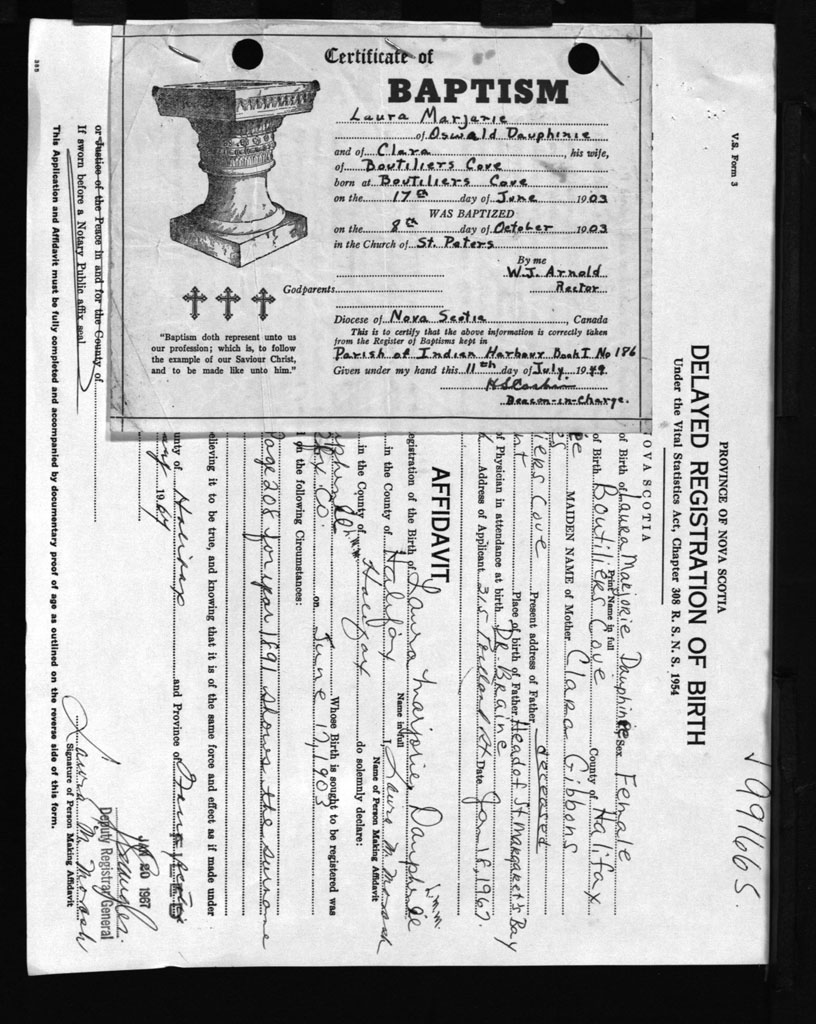 Certificate of
BAPTISM
Laura Marjorie
of Oswald Dauphinie
and of Clara, his wife,
of Boutiliers Cove
born at Boutiliers Cove
on the 17th day of June 1903
WAS BAPTIZED
on the 8th day of October 1903
in the Church of St. Peters
By me
W.J. Arnold
Rector
Godparents
Diocese of Nova Scotia, Canada
This is to certify that the above information is correctly taken
from the Register of Baptisms kept in
Parish of Indian Harbour Book I No 186
Given under my hand this 11th day of July 1949
Deacon-in-Charge.
"Baptism doth represent unto us
our profession; which is, to follow
the example of our Saviour Christ,
and to be made like unto him."
V.S. Form 3
199665.
PROVINCE OF NOVA SCOTIA
DELAYED REGISTRATION OF BIRTH
Under the Vital Statistics Act, Chapter 308 R. S. N. S. 1954
OVA SCOTIA
of Birth of Laura Marjorie Dauphinee Sex Female
Print Name in full
of Birth Boutiliers Cove County of Halifax
MAIDEN NAME of Mother Clara Gibbons
iers Cove Present address of Father deceased
Place of birth of Father Head of St. Margaret's Bay
f Physician in attendance at birth Dr. Braine
Address of Applicant 315 Portland St Date Jan 18, 1967.
AFFIDAVIT
egistration of the Birth of Laura Marjorie Dauphinee
L.M.M.
Name in full
in the County of Halifax I, Laura M.
Name of Person Making Affidavit
in the County of Halifax do solemnly declare:
Whose Birth is sought to be registered was
Co. on June 17, 1903
on the following Circumstances:
page 208 for year 1891 shows the surname
elieving it to be true, and knowing that it is of the same force and effect as if made under
unty of Halifax and Province of
19 67
JAN 20 1967
Deputy Registrar General
Laura M.
Signature of Person Making Affidavit
or Justice of the Peace in and for the County of
If sworn before a Notary Public affix seal
This Application and Affidavit must be fully completed and accompanied by documentary proof of age as outlined on the reverse side of this form.